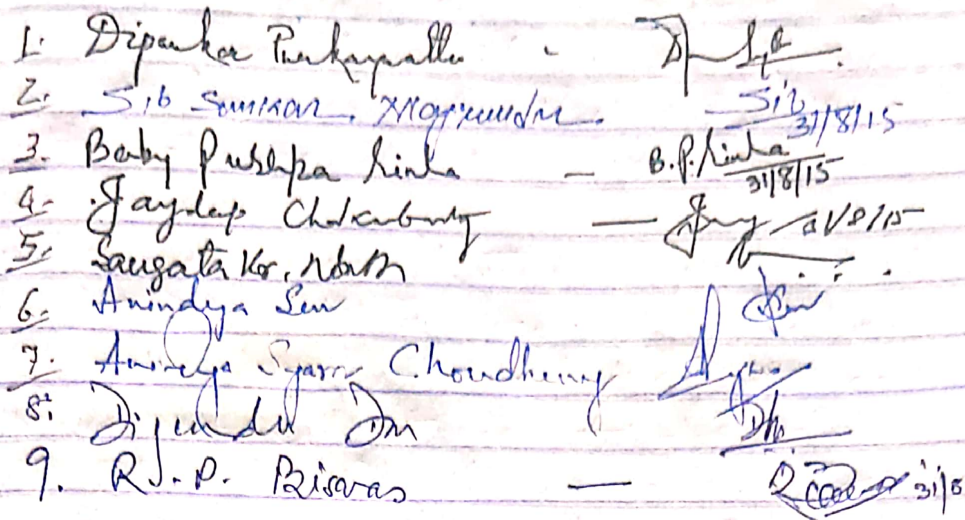 1. Dipankar Purkayastha -
2. Sib Sankar Majumder. Sib 31/8/15
3. Baby Pushpa Sinha — B.P. Sinha 31/8/15
4. Jaydeep Chakraborty —
5. Saugata Kr. Nath
6. Anindya Sen
7. Anindya Syam Choudhury
8. Dijendu
9. R. P. Biswas — 31/8